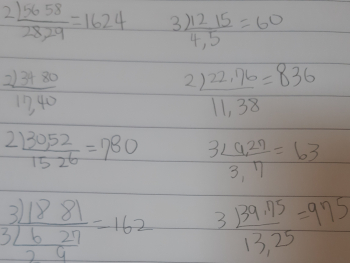 2)56 58 =1624
28,29
3)12 15 =60
4,5
2)34 80
17,40
2)22.76 =836
11,38
2)30,52 =780
15 26
3)9,27 =63
3, 7
3)18 81 =162
3)6 27
2 9
3)39.75 =975
13,25